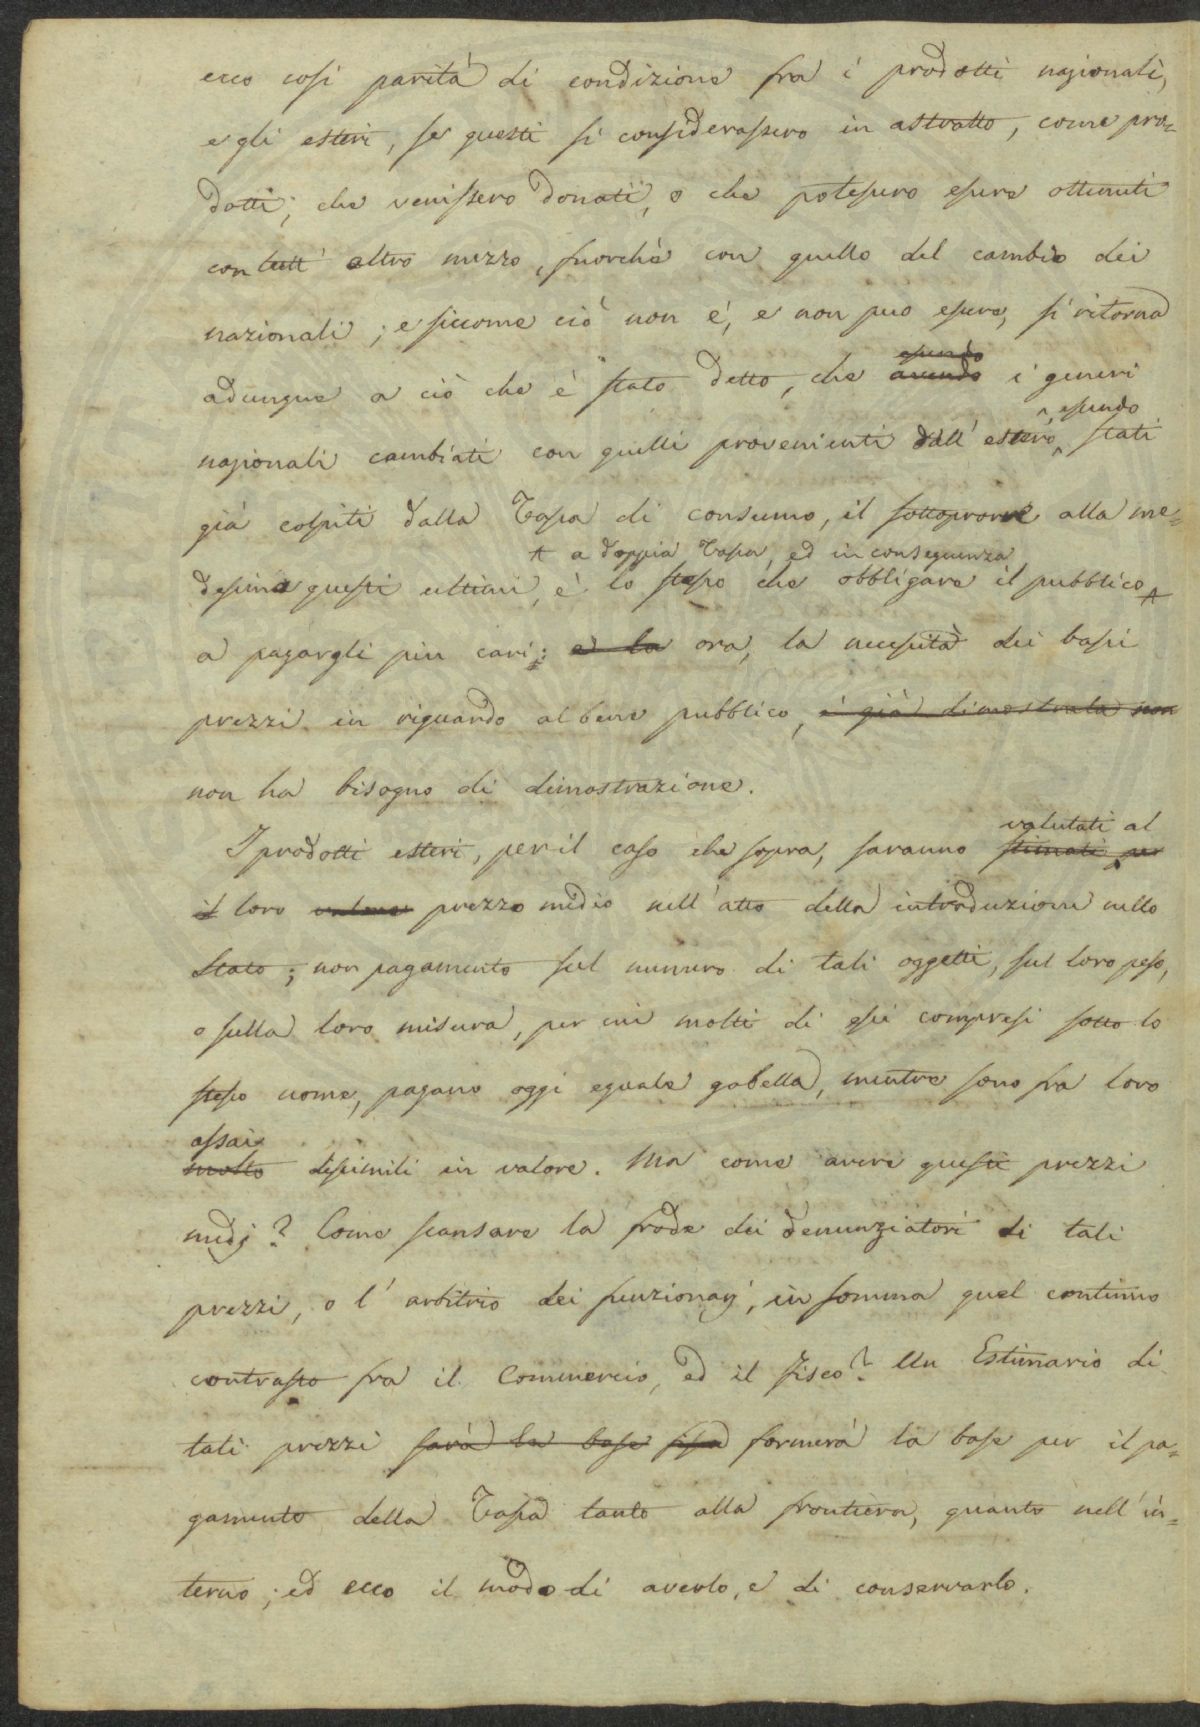 ecco così parità di condizione fra i prodotti nazionali,
e gli esteri, se questi si considerassero in astratto, come pro=
dotti; che venissero donati, o che potessero essere ottenuti
con tutt' altro mezzo, fuorchè con quello del cambio dei
nazionali; e siccome ciò non é, e non puo essere, si ritorna
essendo
adunque a ciò che è stato detto, che avendo i generi
, essendo
nazionali cambiati con quelli provenienti dall' estero stati
già colpiti dalla Tassa di consumo, il sottoporre alla me=
a doppia Tassa, ed in conseguenza
desima questi ultimi, è lo stesso che obbligare il pubblico
a pagargli più cari; e la ora, la necessità dei bassi
prezzi in riguardo al bene pubblico, è già dimostrata non
non ha bisogno di dimostrazione.
valutati al
I prodotti esteri, per il caso che sopra, saranno stimati per
il loro valore prezzo medio nell' atto della introduzione nello
Stato; non pagamento sul numero di tali oggetti, sul loro peso,
o sulla loro misura, per cui molti di essi compresi sotto lo
stesso nome, pagano oggi eguale gabella, mentre sono fra loro
assai
molto dissimili in valore. Ma come avere questi prezzi
medj? Come scansare la frode dei denunziatori di tali
prezzi, o l' arbitrio dei funzionarj, in somma quel continuo
contrasto fra il Commercio, ed il Fisco? Un Estimario di
tali prezzi sarà la base fissa formerà la base per il pa=
gamento della Tassa tanto alla frontiera, quanto nell' in=
terno; ed ecco il modo di averlo, e di conservarlo.